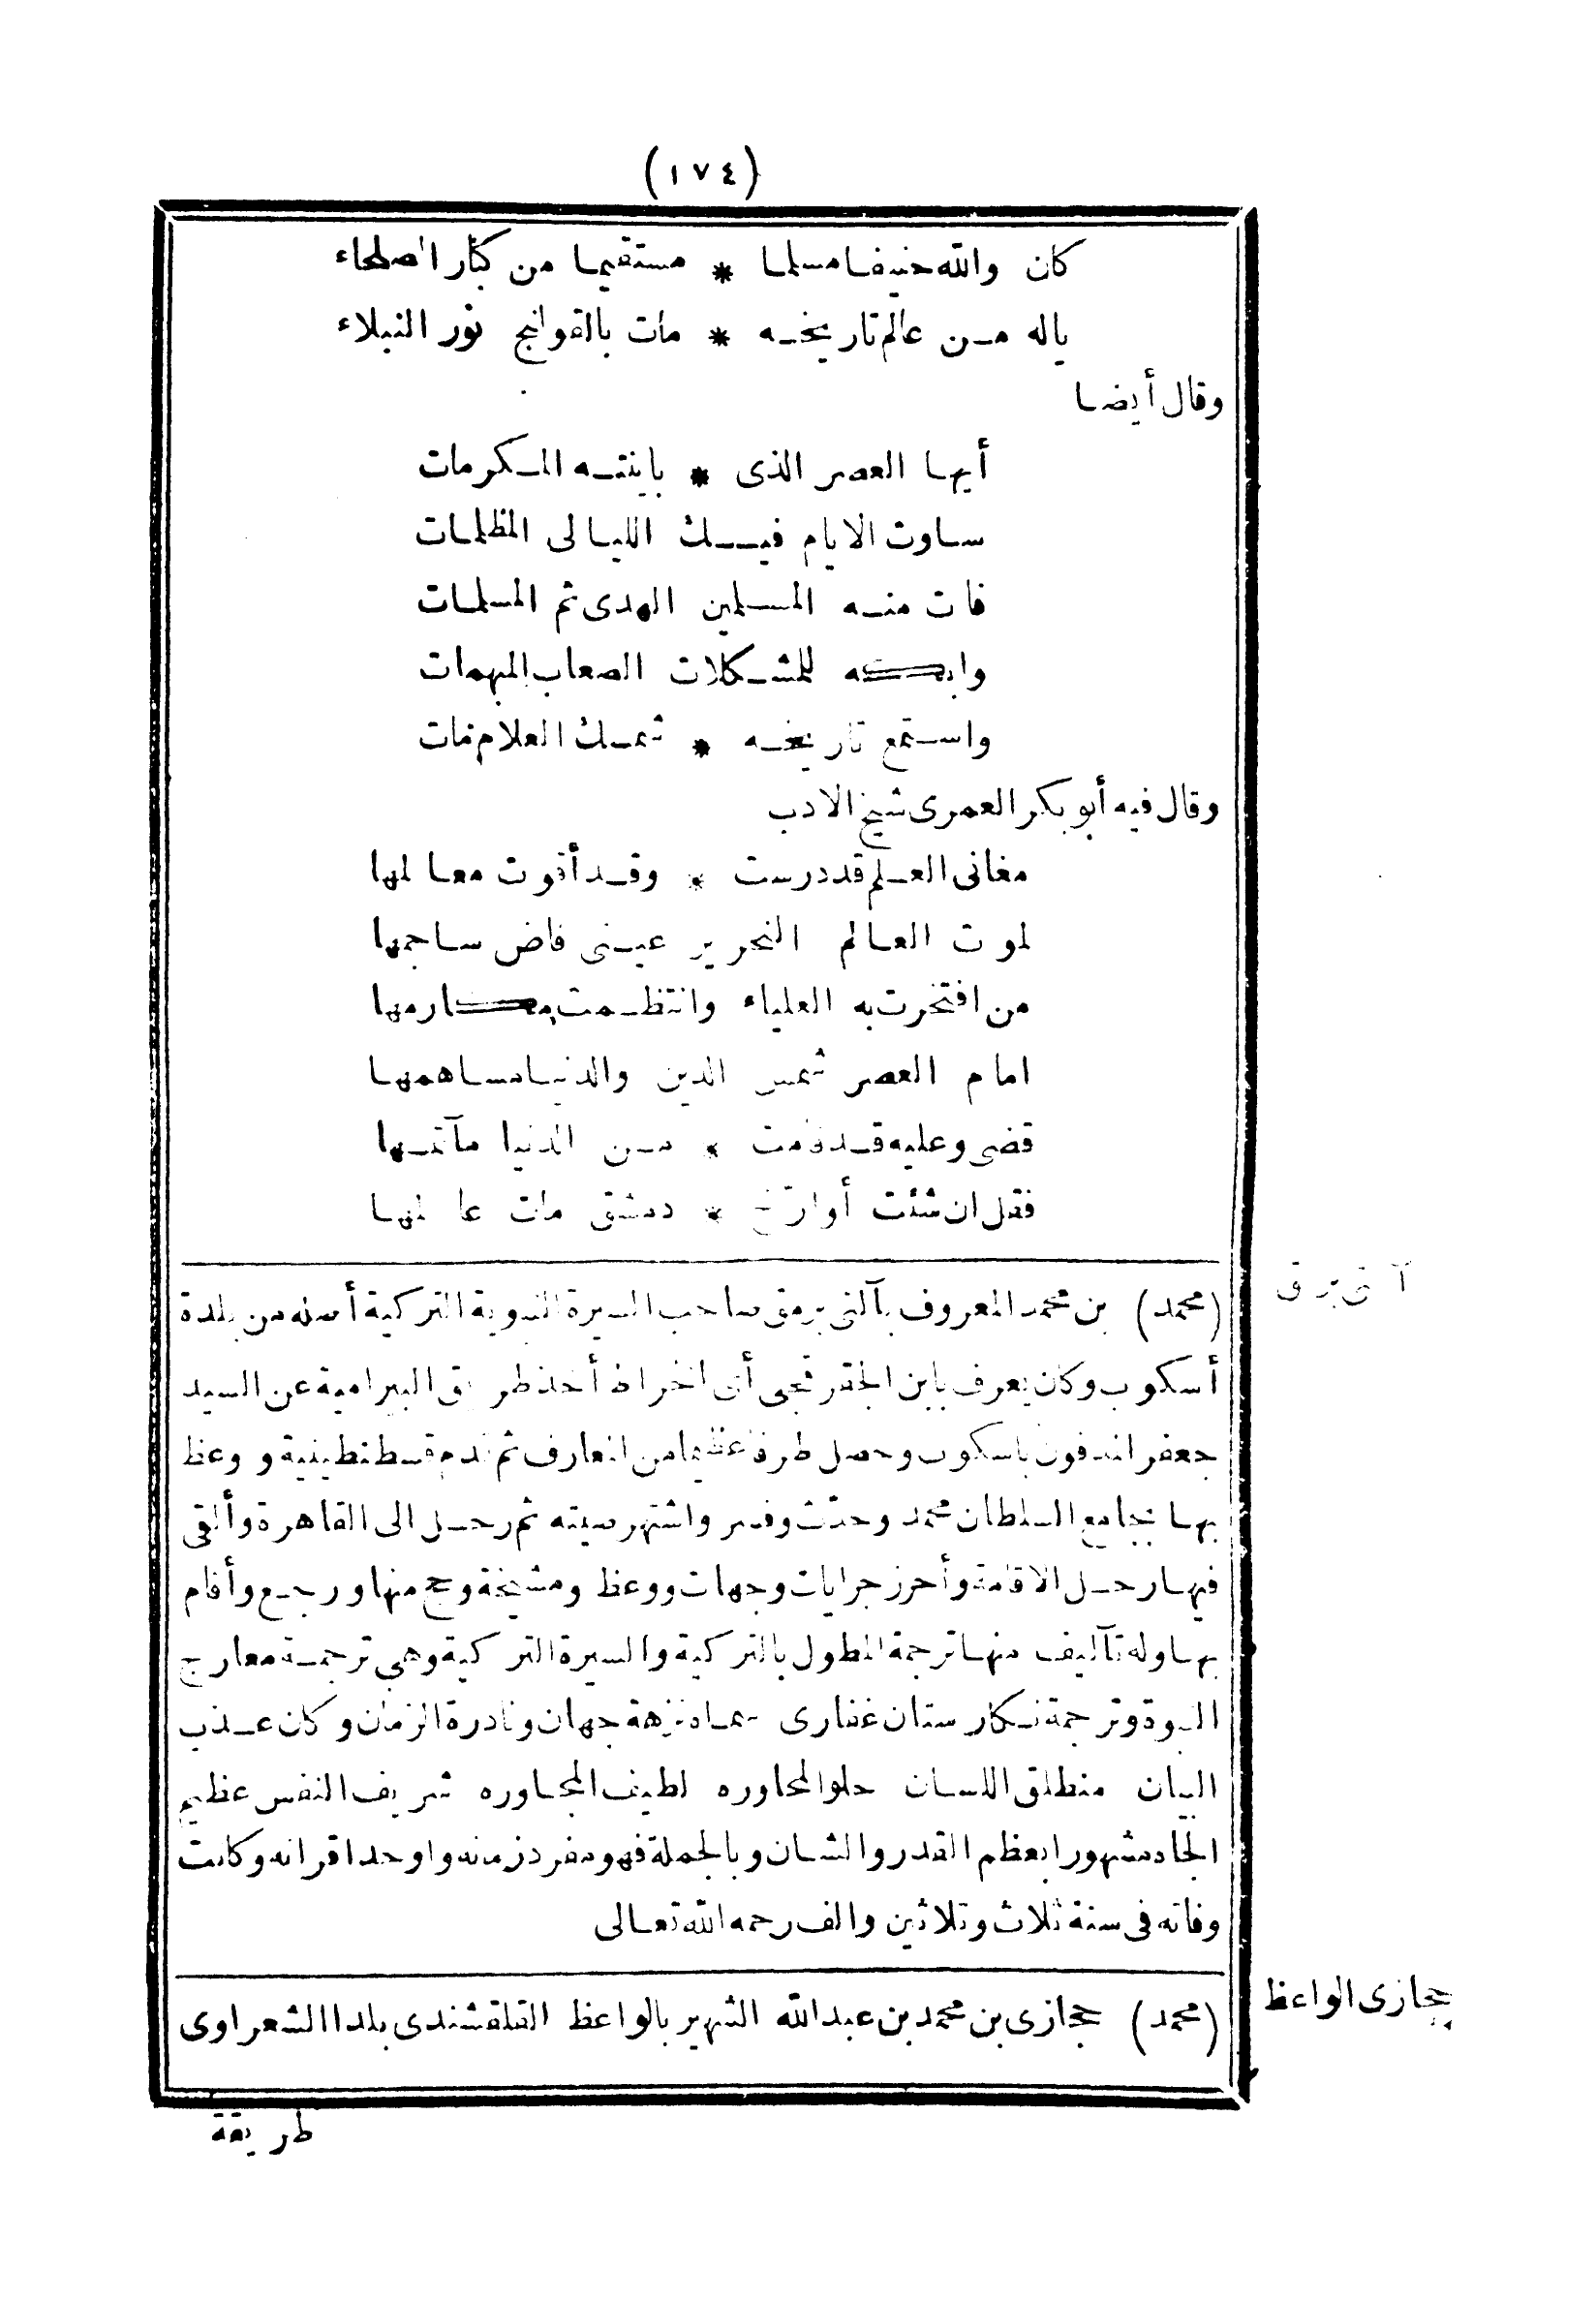 (١٧٤)
كان والله حنيفا مسلما * مستقيما من كبار الصلحاء
ياله من عالم تاريخه * مات بالقولنج نور النبلاء
وقال أيضا
أيها العصر الذى * باينته المكرمات
ساوت الايام فيك الليالى المظلمات
فات منه المسلمين الهدى ثم المسلمات
وابكه للمشكلات الصعاب المبهمات
واستمع تاريخه * شمسك العلام مات
وقال فيه أبو بكر العمرى شيخ الادب
مغانى العلم قد درست * وقد أقوت معالمها
لموت العالم النحرير عينى فاض ساجمها
من افتخرت به العلياء وانتظمت مكارمها
امام العصر شمس الدين والدنيا مساهمها
قضى وعليه قد قامت * من الدنيا مآتمها
فقل ان شئت أو ارّخ * دمشق مات عالمها
آلتى برمق
(محمد) بن محمد المعروف بآلتى برمق صاحب السيرة النبوية التركية أصله من بلدة
أسكوب وكان يعرف بابن الجقرقجى أى الخراط أخذ طريق البيرامية عن السيد
جعفر المدفون باسكوب وحصل طرفا عظيما من المعارف ثم قدم قسطنطينية ووعظ
بها بجامع السلطان محمد وحدّث وفسر واشتهر صيته ثم رحل الى القاهرة وألقى
فيها رحل الاقامة وأحرز جرايات وجهات ووعظ ومشيخة وحج منها ورجع وأقام
بها وله تآليف منها ترجمة المطول بالتركية والسيرة التركية وهى ترجمة معارج
النبوة وترجمة نكارستان غفارى سماه نزهة جهان ونادرة الزمان وكان عذب
البيان منطلق اللسان حلو المحاوره لطيف المجاوره شريف النفس عظيم
الجاه مشهورا بعظم القدر والشان وبالجملة فهو مفرد زمنه واوحد اقرانه وكانت
وفاته فى سنة ثلاث وثلاثين والف رحمه الله تعالى
حجازى الواعظ
(محمد) حجازى بن محمد بن عبدالله الشهير بالواعظ القلقشندى بلدا الشعراوى
طريقة